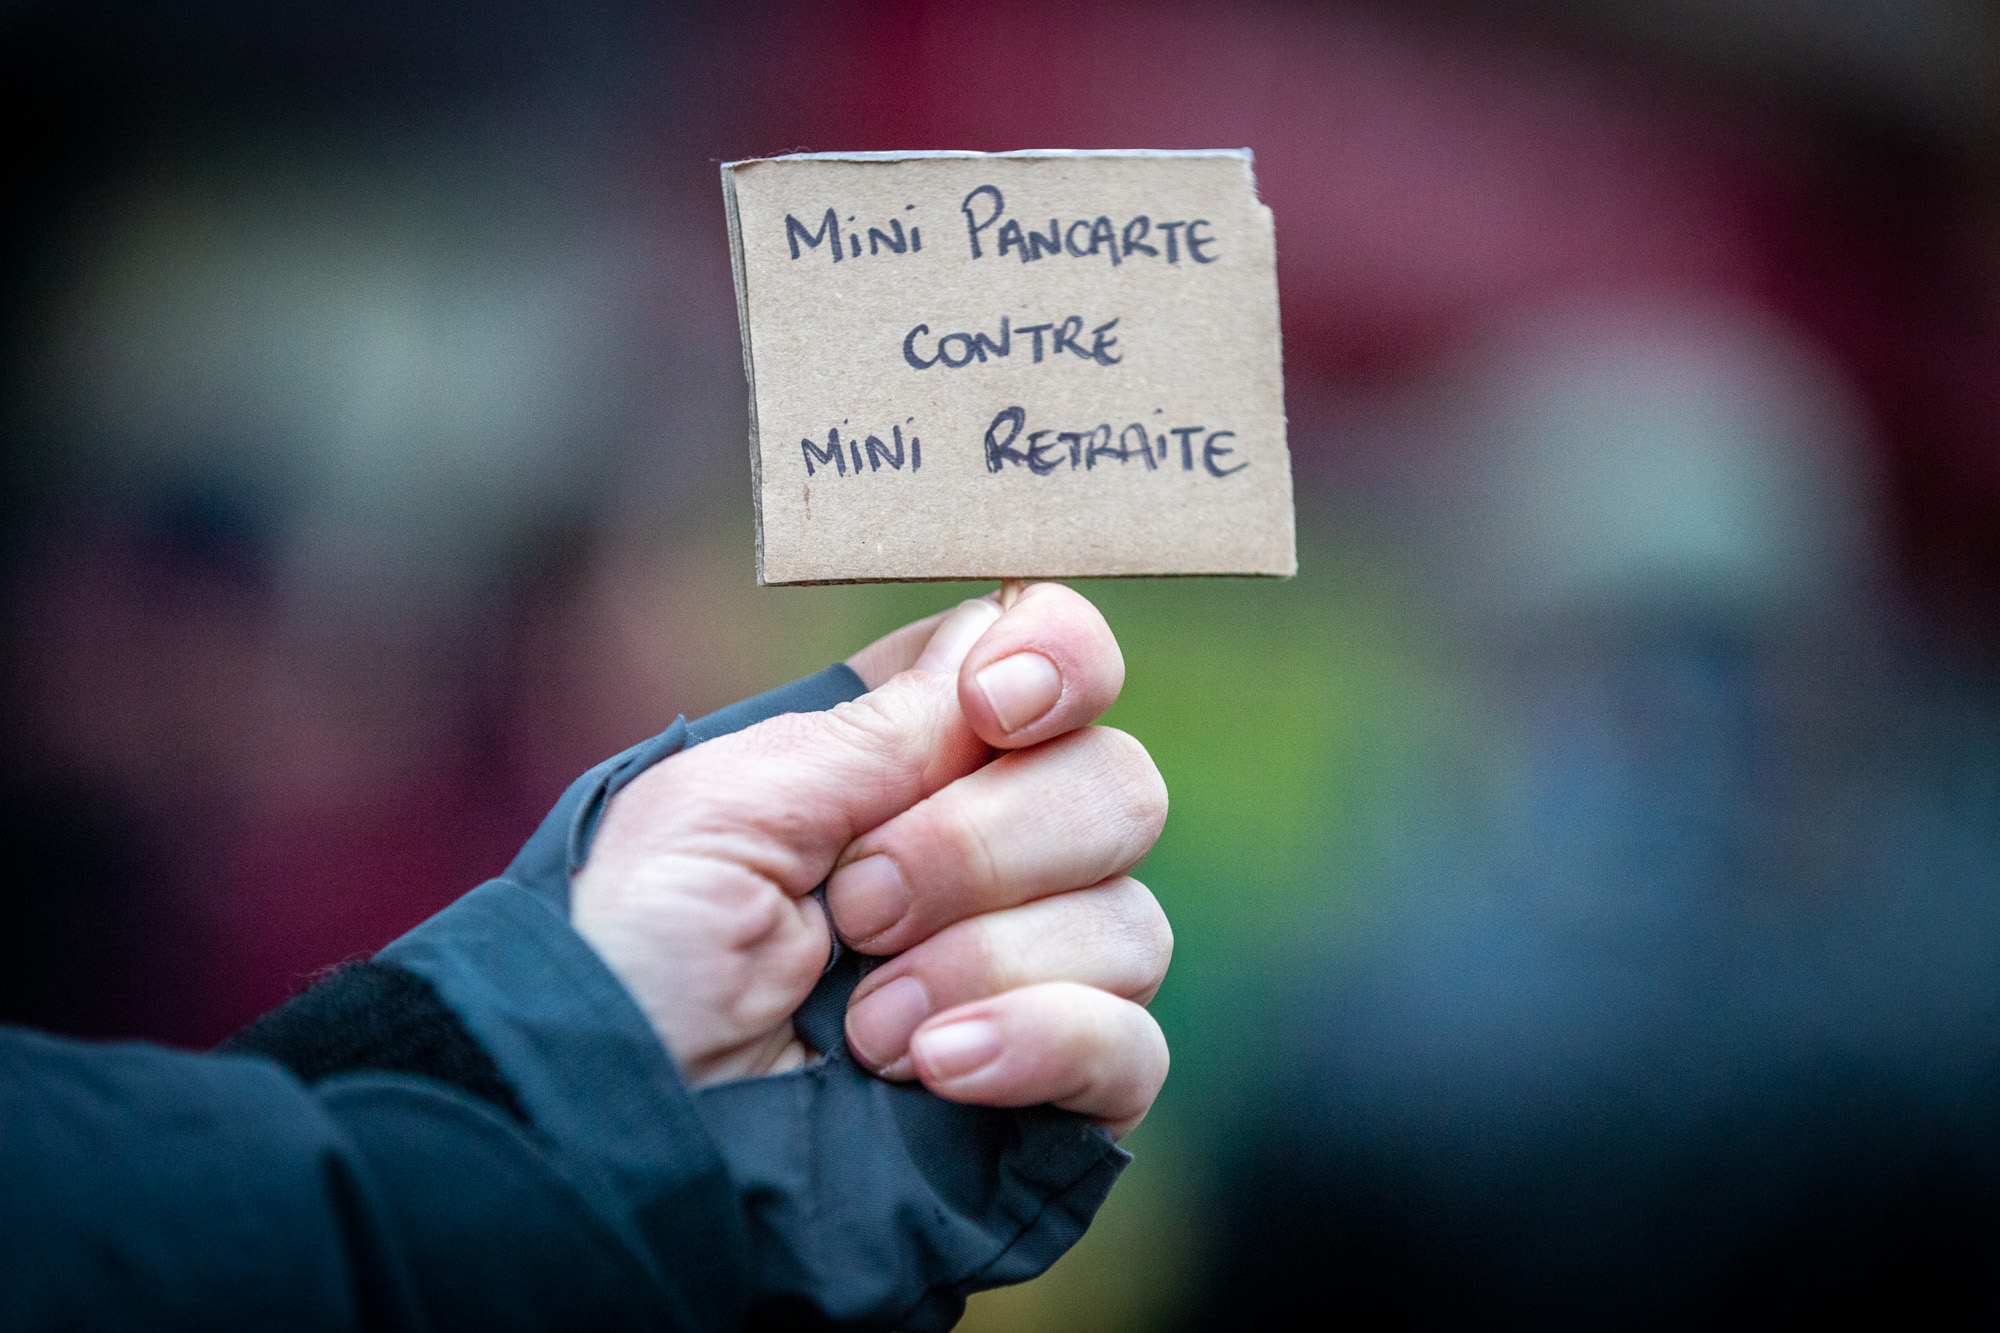 MiNi PANCARTE
CONTRE
MiNi RETRAiTE